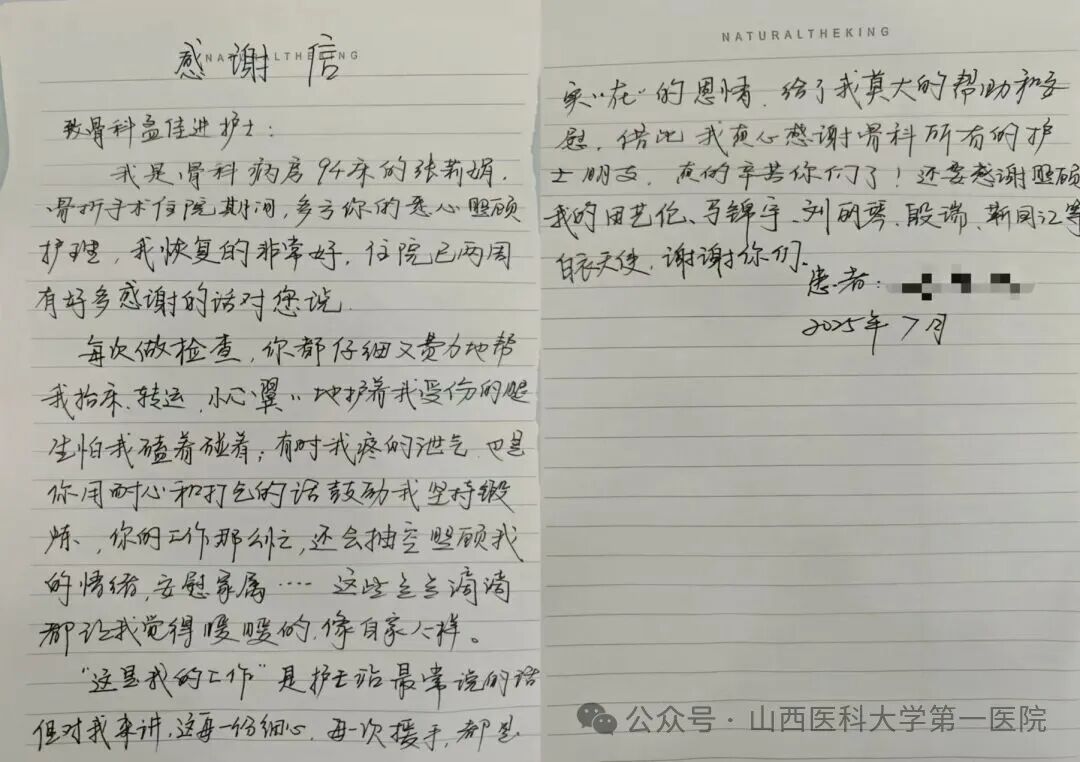 NATURALTHEKING
感谢信
致骨科孟佳进护士:
我是骨科病房94床的张莉娟,
骨折手术住院期间,多亏你的悉心照顾
护理,我恢复的非常好,住院已两周
有好多感谢的话对您说.
每次做检查,你都仔细又费力地帮
我抬床、转运,小心翼〃地护着我受伤的腿
生怕我磕着碰着;有时我疼的泄气,也是
你用耐心和打气的话鼓励我坚持锻
炼,你的工作那么忙,还会抽空照顾我
的情绪,安慰家属……这些点点滴滴
都让我觉得暖暖的,像自家人一样。
“这是我的工作”是护士站最常说的话
但对我来讲,这每一份细心,每一次援手,都是
NATURALTHEKING
实〃在〃的恩情,给了我莫大的帮助和安
慰,借此我真心感谢骨科所有的护
士朋友,真的辛苦你们了!还要感谢照顾
我的田艺伦、马锦宇、刘的琴、殷瑞、靳同江等
白衣天使,谢谢你们。
患者:
2025年7月
公众号·山西医科大学第一医院